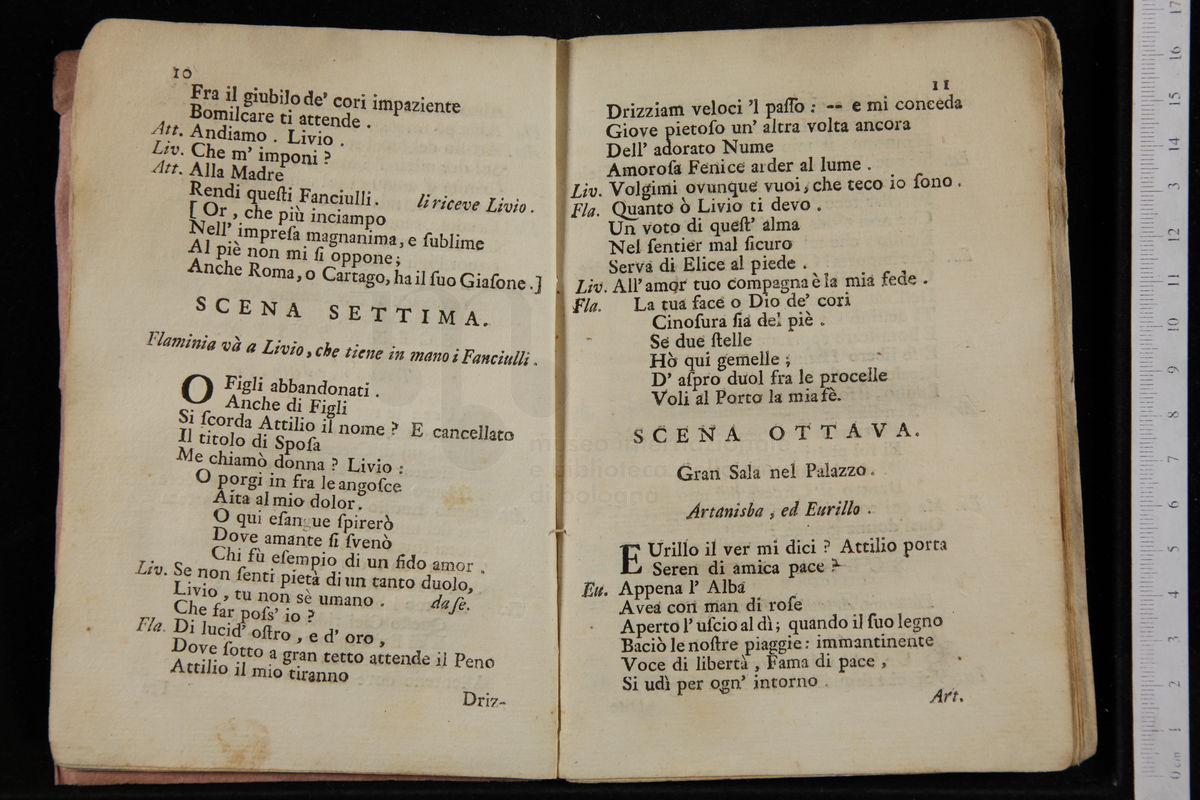 10
Fra il giubilo de' cori impaziente
Bomilcare ti attende .
Att. Andiamo . Livio .
Liv. Che m' imponi ?
Att. Alla Madre
Rendi queſti Fanciulli . li riceve Livio .
[ Or , che più inciampo
Nell' impreſa magnanima, e ſublime
Al piè non mi ſi oppone ;
Anche Roma, o Cartago, ha il ſuo Giaſone .]
SCENA SETTIMA.
Flaminia và a Livio, che tiene in mano i Fanciulli .
O Figli abbandonati .
Anche di Figli
Si ſcorda Attilio il nome ? E cancellato
Il titolo di Spoſa
Me chiamò donna ? Livio :
O porgi in fra le angoſce
Aita al mio dolor .
O qui eſangue ſpirerò
Dove amante ſi ſvenò
Chi fù eſempio di un fido amor .
Liv. Se non ſenti pietà di un tanto duolo,
Livio , tu non sè umano . da ſe.
Che far poſs' io ?
Fla. Di lucid' oſtro , e d' oro ,
Dove ſotto a gran tetto attende il Peno
Attilio il mio tiranno
Driz-
11
Drizziam veloci 'l paſſo : -- e mi conceda
Giove pietoſo un' altra volta ancora
Dell' adorato Nume
Amoroſa Fenice arder al lume .
Liv. Volgimi ovunque vuoi, che teco io ſono .
Fla. Quanto ò Livio ti devo .
Un voto di queſt' alma
Nel ſentier mal ſicuro
Serva di Elice al piede .
Liv. All' amor tuo compagna è la mia fede .
Fla. La tua face o Dio de' cori
Cinoſura ſia del piè .
Se due ſtelle
Hò qui gemelle ;
D' aſpro duol fra le procelle
Voli al Porto la mia fè.
SCENA OTTAVA.
Gran Sala nel Palazzo .
Artanisba , ed Eurillo .
EUrillo il ver mi dici ? Attilio porta
Seren di amica pace ?
Eu. Appena l' Alba
Avea con man di roſe
Aperto l' uſcio al dì ; quando il ſuo legno
Baciò le noſtre piaggie : immantinente
Voce di libertà , Fama di pace ,
Si udì per ogn' intorno .
Art.
museo internazionale
e biblioteca
di bologna